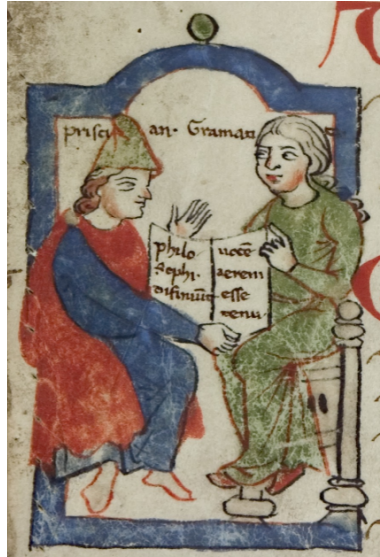 prisci an· Gramati
philo
sophi·
difiniūt
uocē
aerem
esse
tenu·